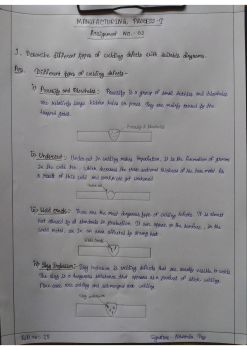 MANUFACTURING PROCESS-I
Assignment No.-03
1. Describe different types of welding defects with suitable diagrams.
Ans. Different types of welding defects:-
i) Porosity and Blowholes:- Porosity is a group of small and blowholes
are relatively large hidden holes or pores. They are mainly caused by the
trapped gases.
Porosity & Blowholes
ii) Undercut:- Undercut in welding makes imperfection. It is the formation of grooves
in the weld toe, which decreases the cross-sectional thickness of the base metal. As
a result of this weld and workpiece get weakened.
Undercut
iii) Weld Crack:- These are the most dangerous type of welding defects. It is almost
not allowed by all standards in production. It can appear on the surface, in the
weld metal, or in an area affected by strong heat.
Weld Crack
iv) Slag Inclusion:- Slag inclusion is welding defects that are usually visible in welds.
The slag is a dangerous substance that appears as a product of stick welding,
flux-core arc welding and submerged arc welding.
Slag Inclusion
Signature-